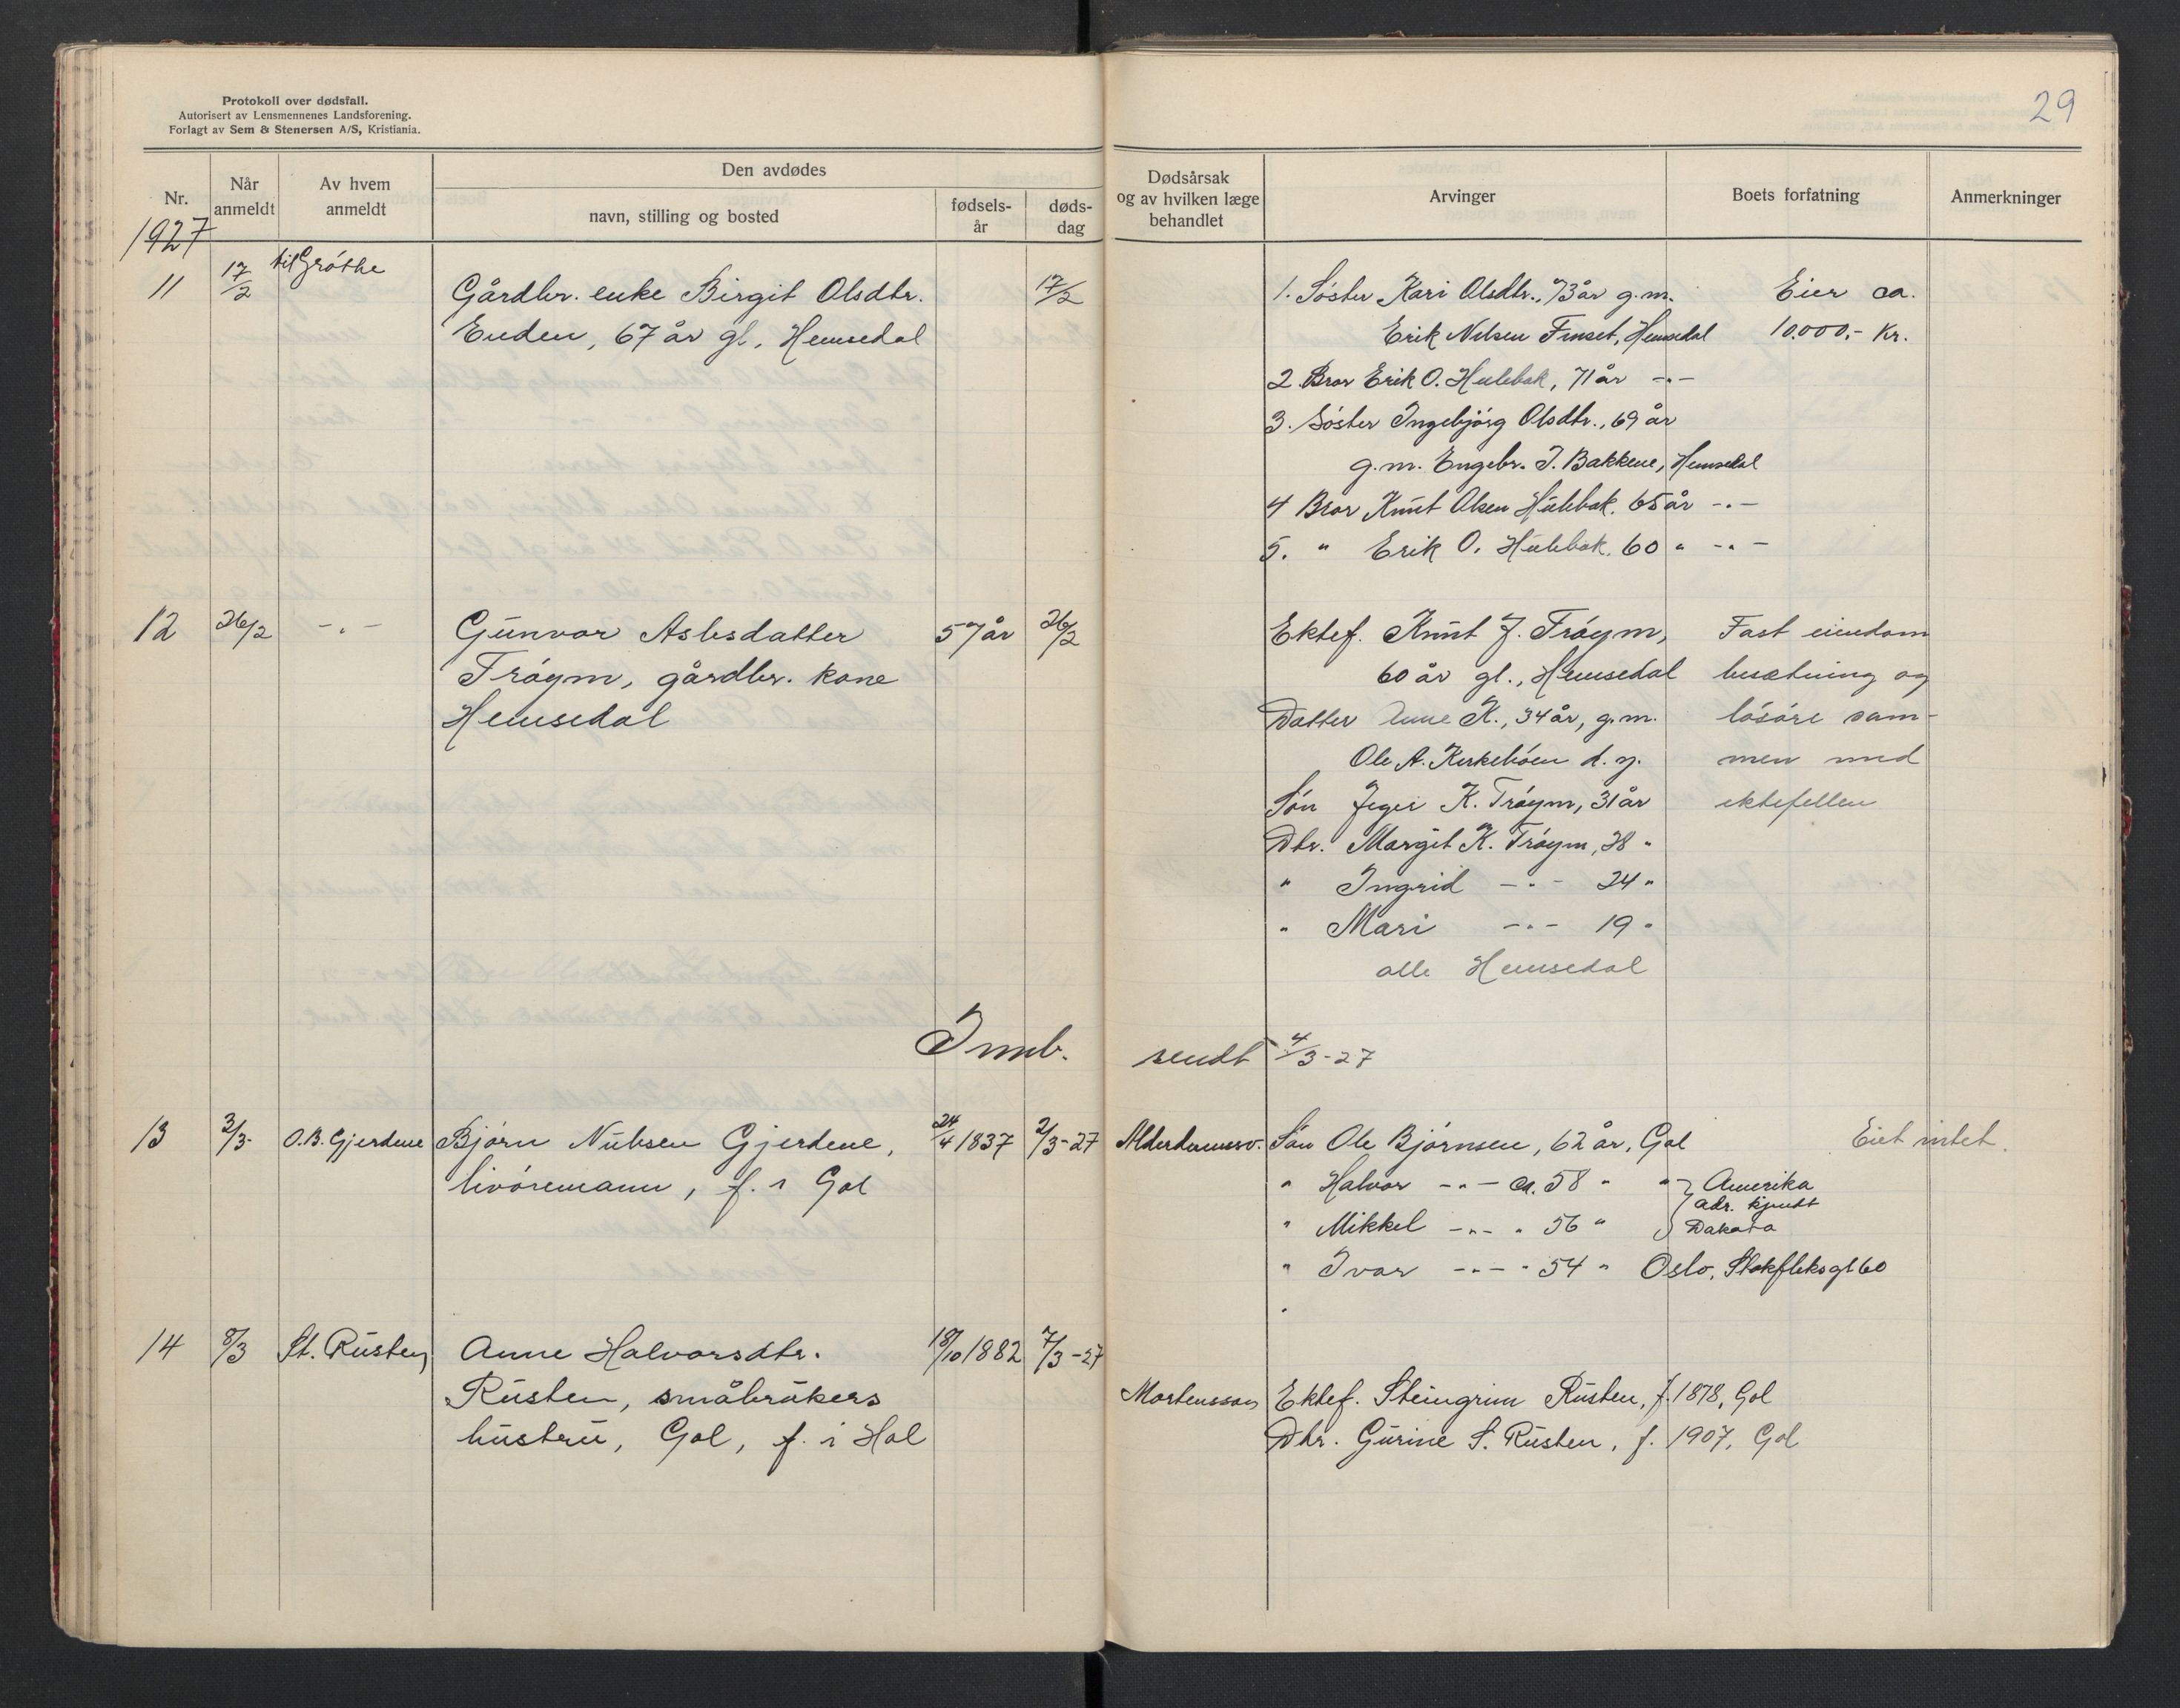 Protokoll over dødsfall.
Autorisert av Lensmennenes Landsforening.
Forlagt av Sem & Stenersen A/S, Kristiania.
29
Nr.
Når anmeldt
Av hvem anmeldt
Den avdødes
navn, stilling og bosted
fødsels- år
døds- dag
Dødsårsak og av hvilken læge behandlet
Arvinger
Boets forfatning
Anmerkninger
1927
11 17/2 til Gróthe Gårdbr. enke Birgit Olsdtr. 17/2
Enden, 67 år gl., Hemsedal
1. Søster Kari Olsdtr., 73 år g.m. Eier ca.
Erik Nilsen Finset, Hemsedal 10.000,- Kr.
2. Bror Erik O. Hulebak, 71 år -"-
3. Søster Ingebjørg Olsdtr., 69 år
g.m. Engebr. I. Bakkene, Hemsedal
4 Bror Knut Olsen Hulebak. 65 år -"-
5. " Erik O. Hulebak. 60 " -"-
12 26/2 -"- Gunvor Aslesdatter 57 år 26/2
Trøym, gårdbr. kone
Hemsedal
Ektef. Knut J. Trøym, Fast eiendom
60 år gl., Hemsedal besætning og
Datter Anne K., 34 år, g.m. løsøre sam-
Ole A. Kirkebøen d.y. men med
Søn K. Trøym, 31 år ektefellen
Dtr. Margit K. Trøym, 28 "
" Ingrid -"- 24 "
" Mari -"- 19 "
alle Hemsedal
Innb. sendt 4/3-27
13 3/3- O.B. Gjerdene Bjørn Nubsen Gjerdene, 24/4 1837 2/3-27 Alderdomssv. Søn Ole Bjørnsen, 62 år, Gol Eiet intet.
livøremann, f. i Gol
" Halvor -"- ca. 58 " " Amerika
adr. kjendt
" Mikkel -"- " 56 " Dakota
" Ivar -"- " 54 " Oslo, Stokfletsgt 60
14 8/3 St. Rusten Anne Halvorsdtr. 18/10 1882 7/3-27
Rusten, småbrukers
hustru, Gol, f. i Hol
Mortensson Ektef. Steingrim Rusten, f. 1878, Gol
Dtr. Gurine S. Rusten, f. 1907, Gol